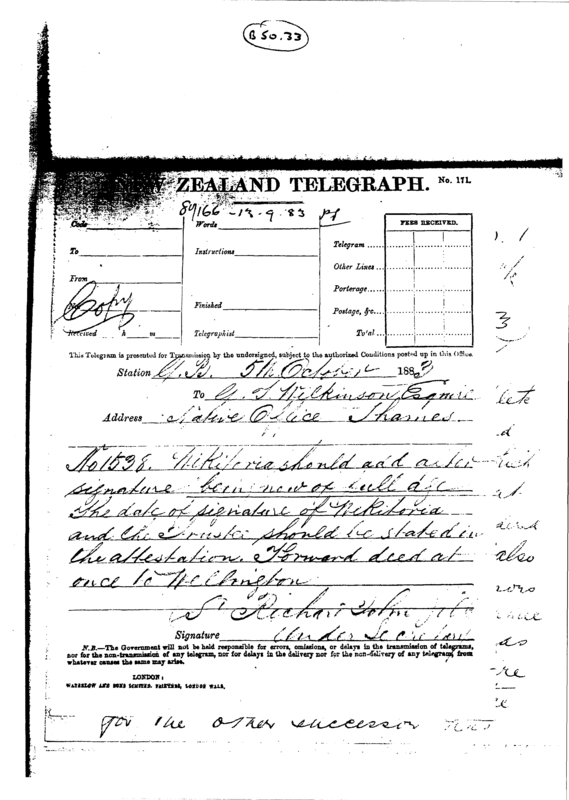 B 50.33
ZEALAND TELEGRAPH. No. 171.
89166 - 13.9.83
Code
Words
FEES RECEIVED.
Telegram
To
Instructions
Other Lines
From
Porterage
Copy
Finished
Postage, &c.
Received h m
Telegraphist
Total
This Telegram is presented for Transmission by the undersigned, subject to the authorized Conditions posted up in this Office.
Station G.B. 5th October 1883
To G. T. Wilkinson, Esquire
Address Native Office Thames
No 1538. Wikitoria should add after
signature being now of full age
The date of signature of Wikitoria
and the Trustee should be stated in
the attestation. Forward deed at
once to Wellington
Richard John
Signature Under Secretary
N.B.—The Government will not be held responsible for errors, omissions, or delays in the transmission of telegrams,
nor for the non-transmission of any telegram, nor for delays in the delivery nor for the non-delivery of any telegram, from
whatever causes the same may arise.
LONDON:
WATERLOW AND SONS LIMITED, PRINTERS, LONDON WALL.
also
as
for the other successor